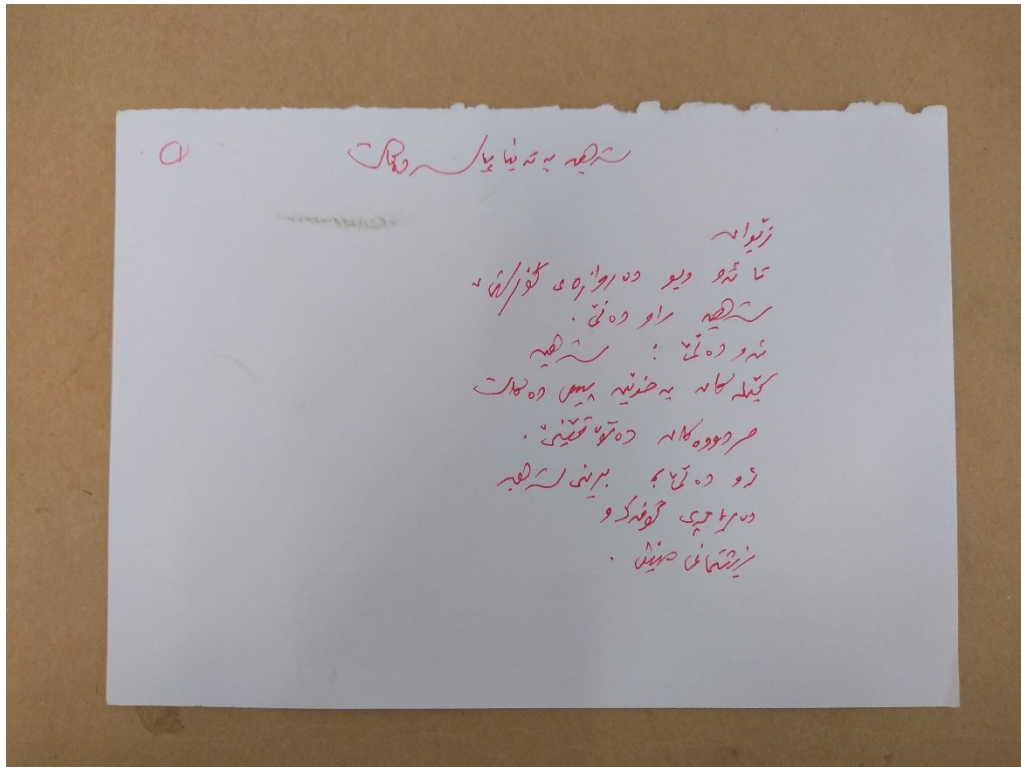 شەهید بە تەنیا پیاسە دەکات
١
ژێوان
تا ئەو دیو دەروازەی گۆڕستان
شەهید ڕاو دەنێ.
ئەو دەڵێ: شەهید
کێلەکان بە خوێن پیس دەکات
مردووەکان دەتۆقێنێ.
ئەو دەڵێ: برینی شەهید
دەریاچەی گۆڤەک و
نیشتمانی مێش.